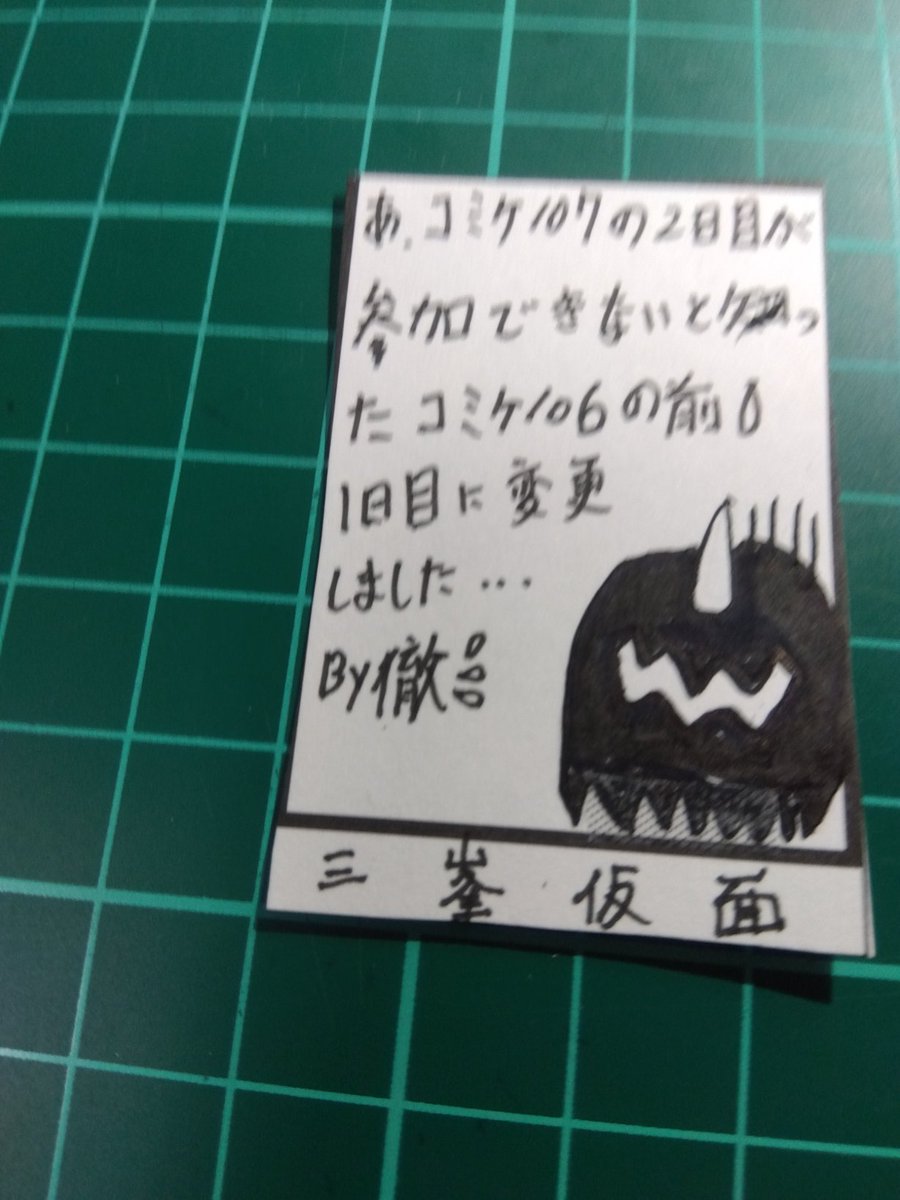 あ、コミケ107の2日目が
参加できないと知っ
たコミケ106の前日
1日目に変更
しました…
By徹
三峯仮面